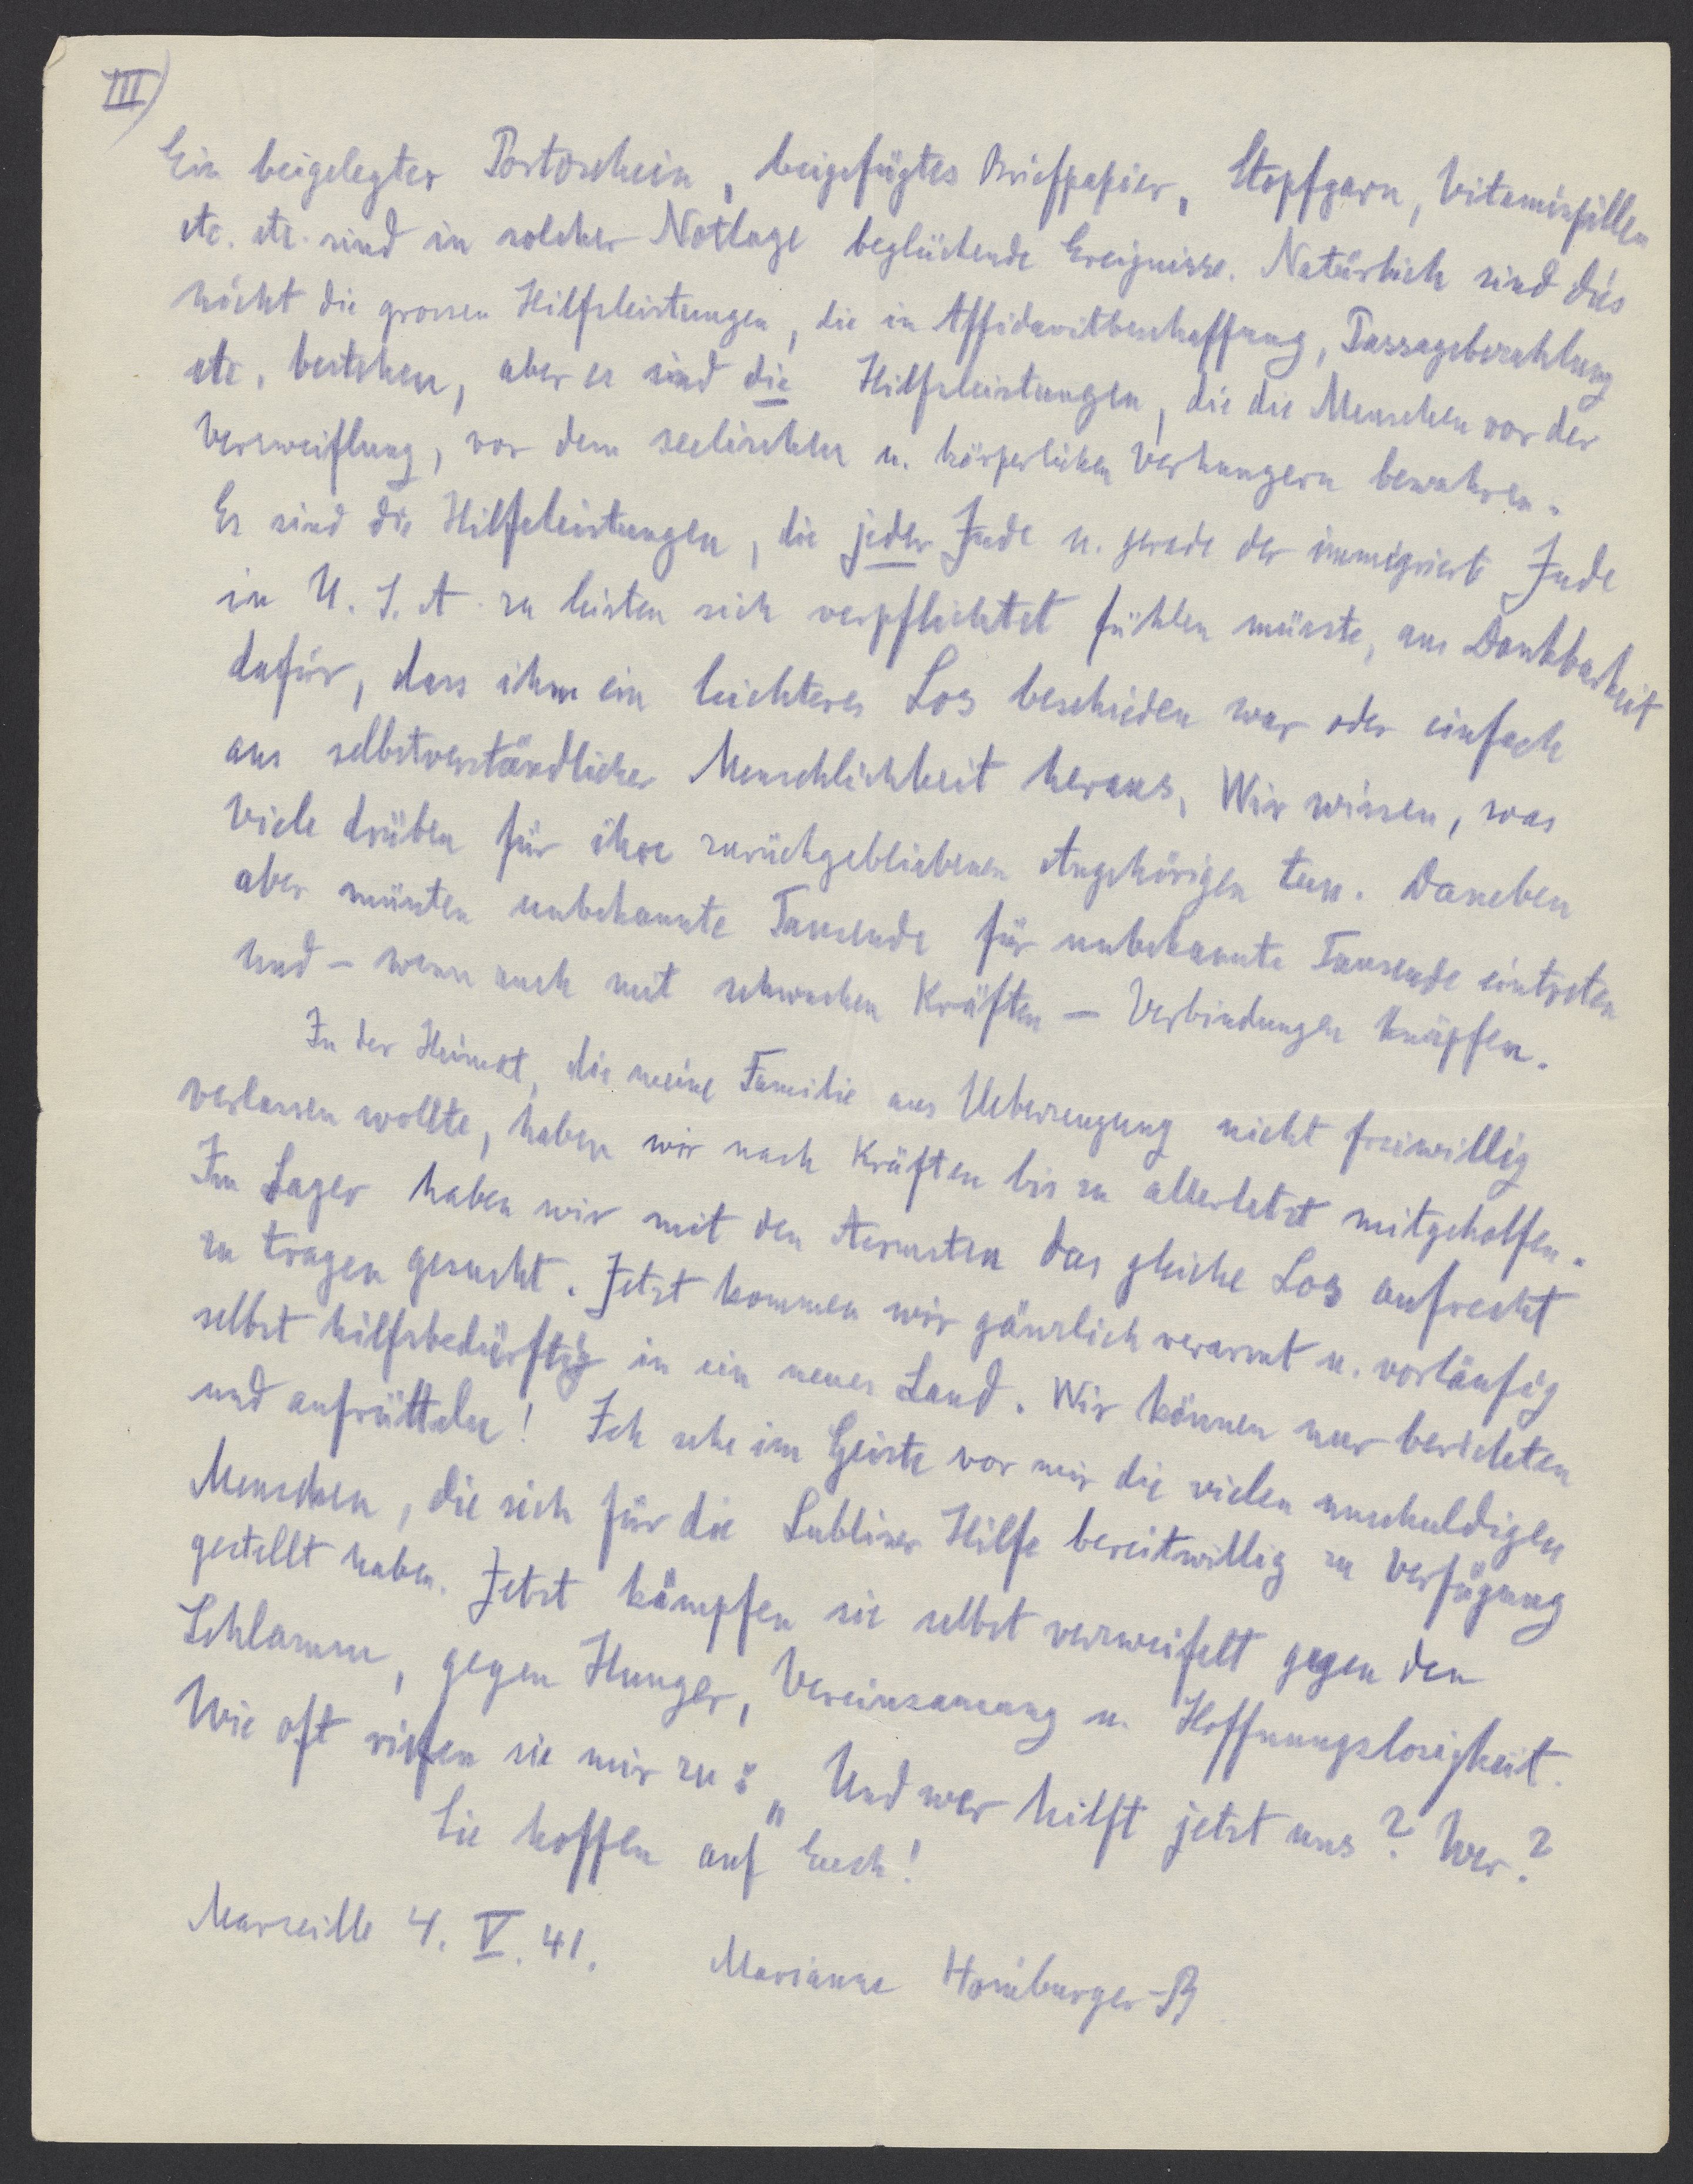 III)
Ein beigelegter Portoschein, beigefügtes Briefpapier, Stopfgarn, Vitaminpillen
etc. etc. sind in solcher Notlage beglückende Ereignisse. Natürlich sind dies
nicht die grossen Hilfsleistungen, die in Affidavitbeschaffung, Passagebezahlung
etc. bestehen, aber es sind die Hilfsleistungen, die die Menschen vor der
Verzweiflung, vor dem seelischen u. körperlichen Verhungern bewahren.
Es sind die Hilfeleistungen, die jeder Jude u. gerade der immigrierte Jude
in U.S.A. zu leisten sich verpflichtet fühlen müsste, aus Dankbarkeit
dafür, dass ihm ein leichteres Los beschieden war oder einfach
aus selbstverständlicher Menschlichkeit heraus. Wir wissen, was
viele drüben für ihre zurückgebliebenen Angehörigen tun. Daneben
aber müssten unbekannte Tausende für unbekannte Tausende eintreten
und – wenn auch mit schwachen Kräften – Verbindungen knüpfen.
In der Heimat, die meine Familie aus Ueberzeugung nicht freiwillig
verlassen wollte, haben wir nach Kräften bis zu allerletzt mitgeholfen.
Im Lager haben wir mit den Aermsten das gleiche Los aufrecht
zu tragen gesucht. Jetzt kommen wir gänzlich verarmt u. vorläufig
selbst hilfsbedürftig in ein neues Land. Wir können nur berichten
und aufrütteln! Ich sehe im Geiste vor mir die vielen unschuldigen
Menschen, die sich für die Lubliner Hilfe bereitwillig zu Verfügung
gestellt haben. Jetzt kämpfen sie selbst verzweifelt gegen den
Schlamm, gegen Hunger, Vereinsamung u. Hoffnungslosigkeit.
Wie oft riefen sie mir zu: „Und wer hilft jetzt uns? Wer?
Sie hoffen auf Euch!
Marseille 4. V. 41. Marianne Homburger-